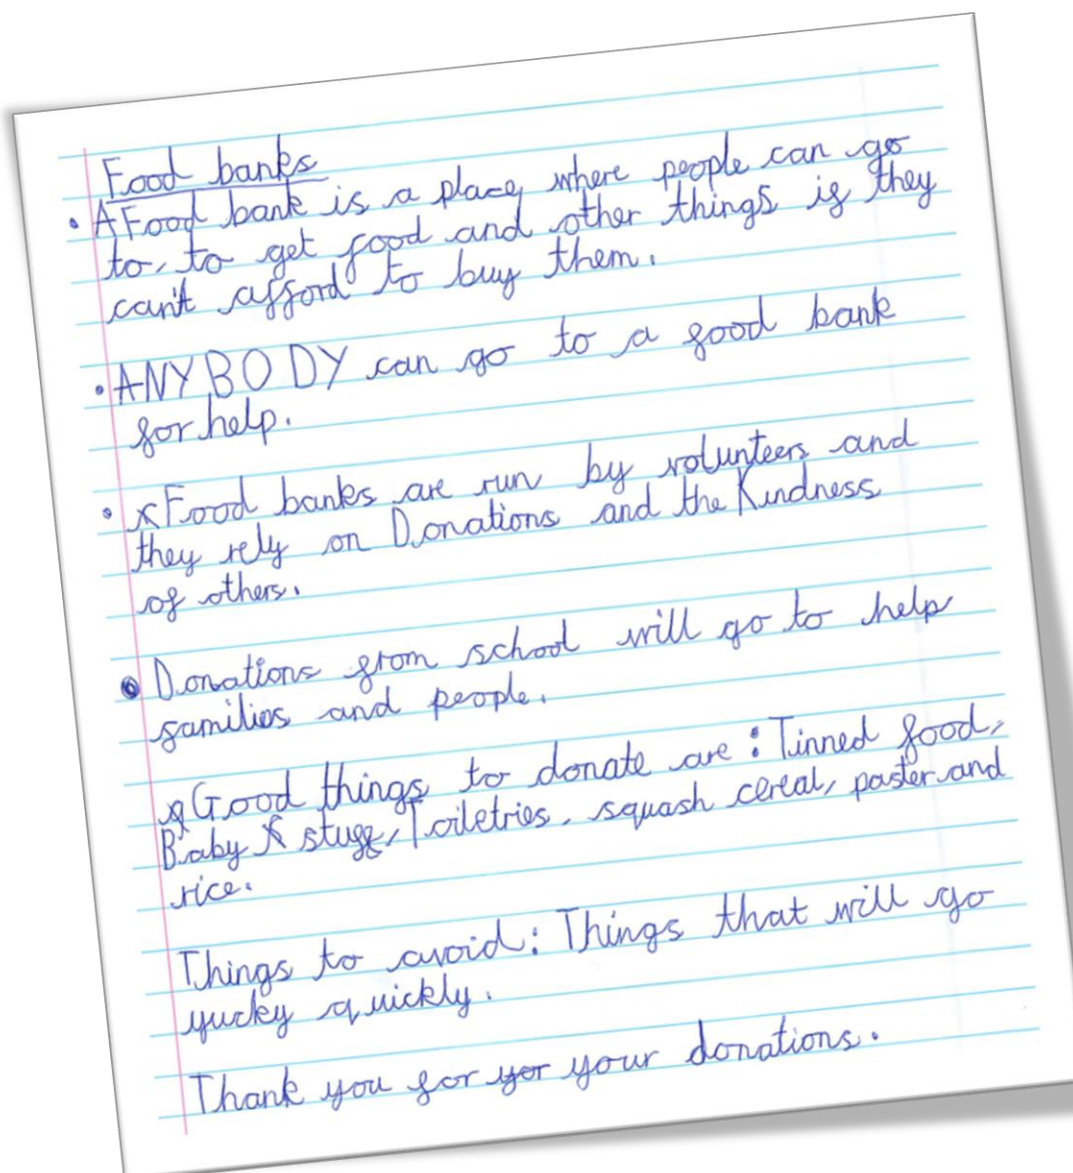 Food banks
• A Food bank is a place, where people can go
to, to get food and other things if they
can't afford to buy them.
• ANYBODY can go to a food bank
for help.
• Food banks are run by volunteers and
they rely on Donations and the Kindness
of others.
• Donations from school will go to help
families and people.
Good things to donate are: Tinned food,
Baby stuff, Toiletries, squash cereal, paster and
rice.
Things to avoid: Things that will go
yucky quickly.
Thank you for yor your donations.